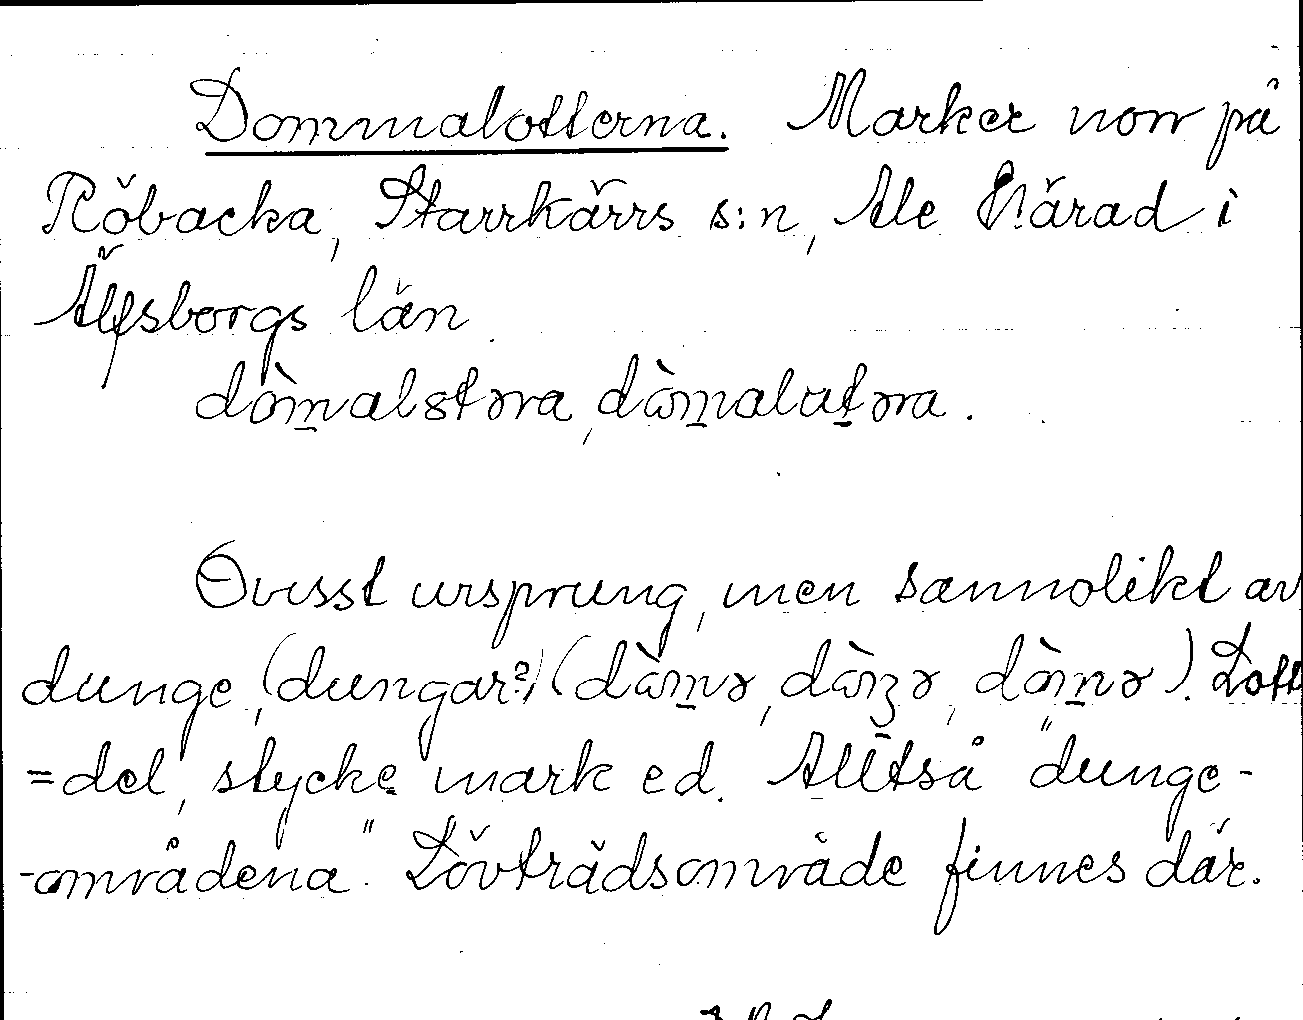 Dommalotterna. Marker norr på
Röbacka, Starrkärrs s:n, Ale Härad i
Älfsborgs län
dòm̲alstəra, dàm̲alat̲əra.
Ovisst ursprung, men sannolikt av
dunge, (dungar?) (dàm̲ə, dàŋə, dòn̲ə). Lott
=del, stycke mark ed. Alltså "dunge-
-områdena". Lövträdsområde finnes där.